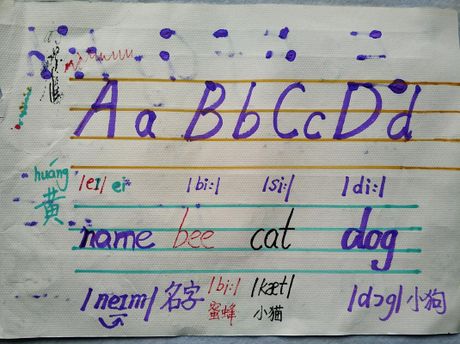 Aa Bb Cc Dd
huáng |eɪ| ei |bi:| |si:| |di:|
黄
name bee cat dog
|neɪm| 名字 |bi:| |kæt| |dɔg| 小狗
蜜蜂 小猫